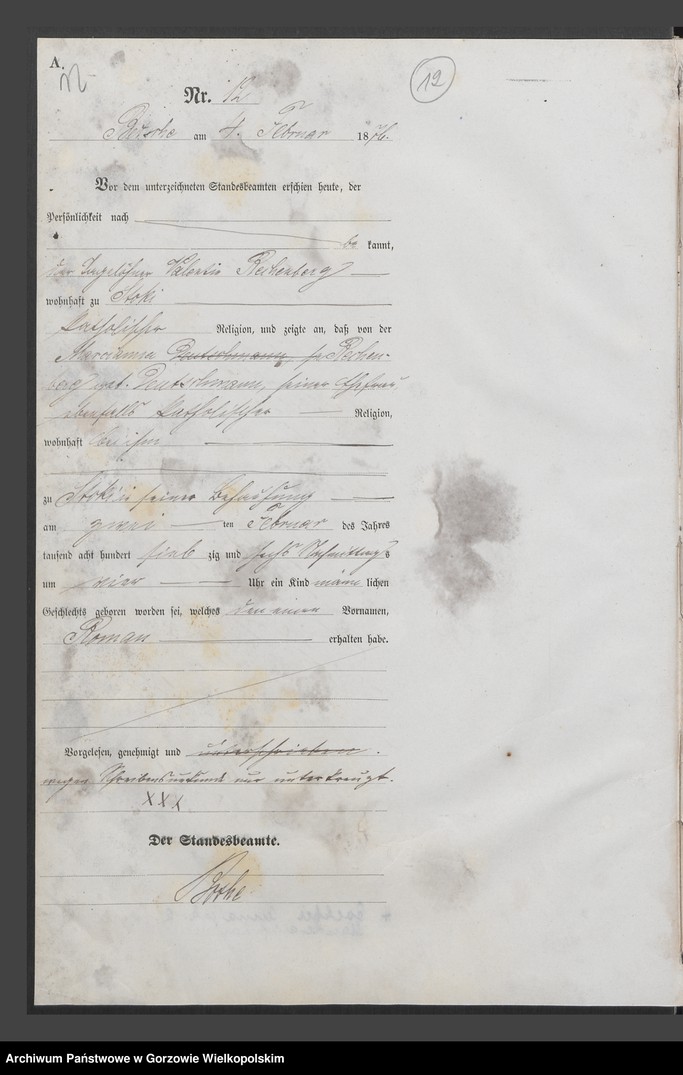 A.
12
Nr. 12
Betsche am 4. Februar 1876.
Vor dem unterzeichneten Standesbeamten erschien heute, der
Persönlichkeit nach
be kannt,
der Tagelöhner Valentin Rechenberg
wohnhaft zu Stoki
katholischer Religion, und zeigte an, daß von der
Marcianna Deutschmann Rechen-
berg geb. Deutschmann, seiner Ehefrau
ebenfalls katholischer Religion,
wohnhaft bei ihm
zu Stoki in seiner Behausung
am zwei ten Februar des Jahres
tausend acht hundert sieb zig und sechs Nachmittags
um vier Uhr ein Kind männ lichen
Geschlechts geboren worden sei, welches den einen Vornamen,
Roman erhalten habe.
Vorgelesen, genehmigt und unterschrieben.
wegen Schreibensunkunde nur unterkreuzt.
XXX
Der Standesbeamte.
Archiwum Państwowe w Gorzowie Wielkopolskim